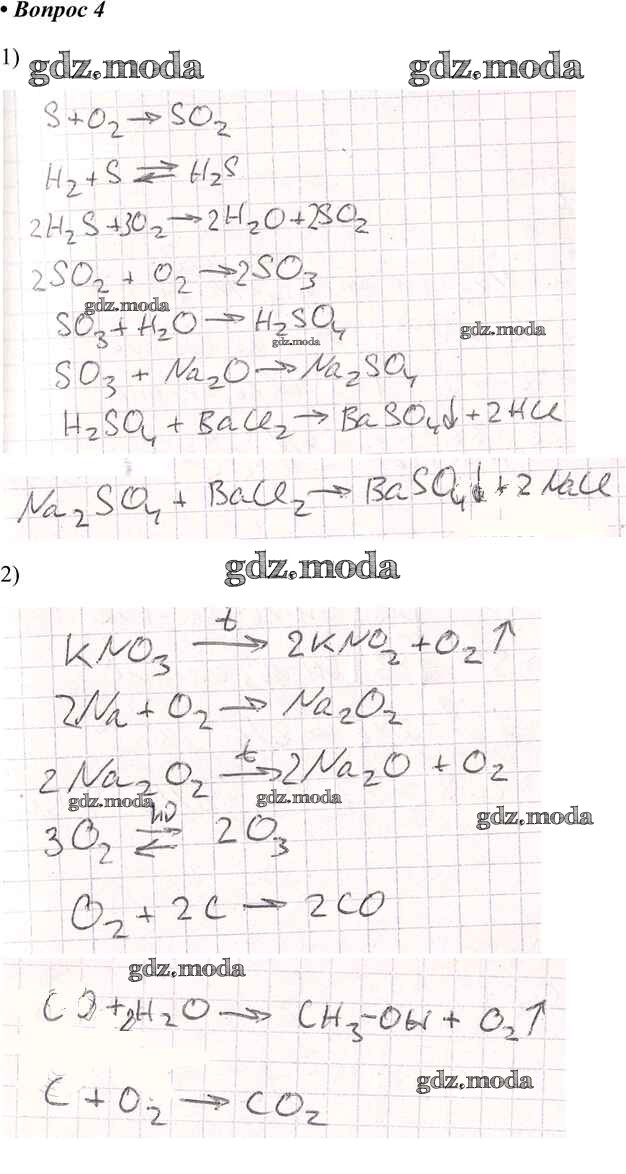 • Вопрос 4
1)
gdz.moda gdz.moda
S + O₂ → SO₂
H₂ + S ⇄ H₂S
2H₂S + 3O₂ → 2H₂O + 2SO₂
2SO₂ + O₂ → 2SO₃
gdz.moda
SO₃ + H₂O → H₂SO₄
gdz.moda
gdz.moda
SO₃ + Na₂O → Na₂SO₄
H₂SO₄ + BaCl₂ → BaSO₄↓ + 2HCl
Na₂SO₄ + BaCl₂ → BaSO₄↓ + 2NaCl
gdz.moda
2)
KNO₃ →ᵗ 2KNO₂ + O₂↑
2Na + O₂ → Na₂O₂
2Na₂O₂ →ᵗ 2Na₂O + O₂
gdz.moda gdz.moda
gdz.moda
3O₂ ⇄ʰᶹ 2O₃
O₂ + 2C → 2CO
gdz.moda
CO + 2H₂O → CH₃-OH + O₂↑
gdz.moda
C + O₂ → CO₂